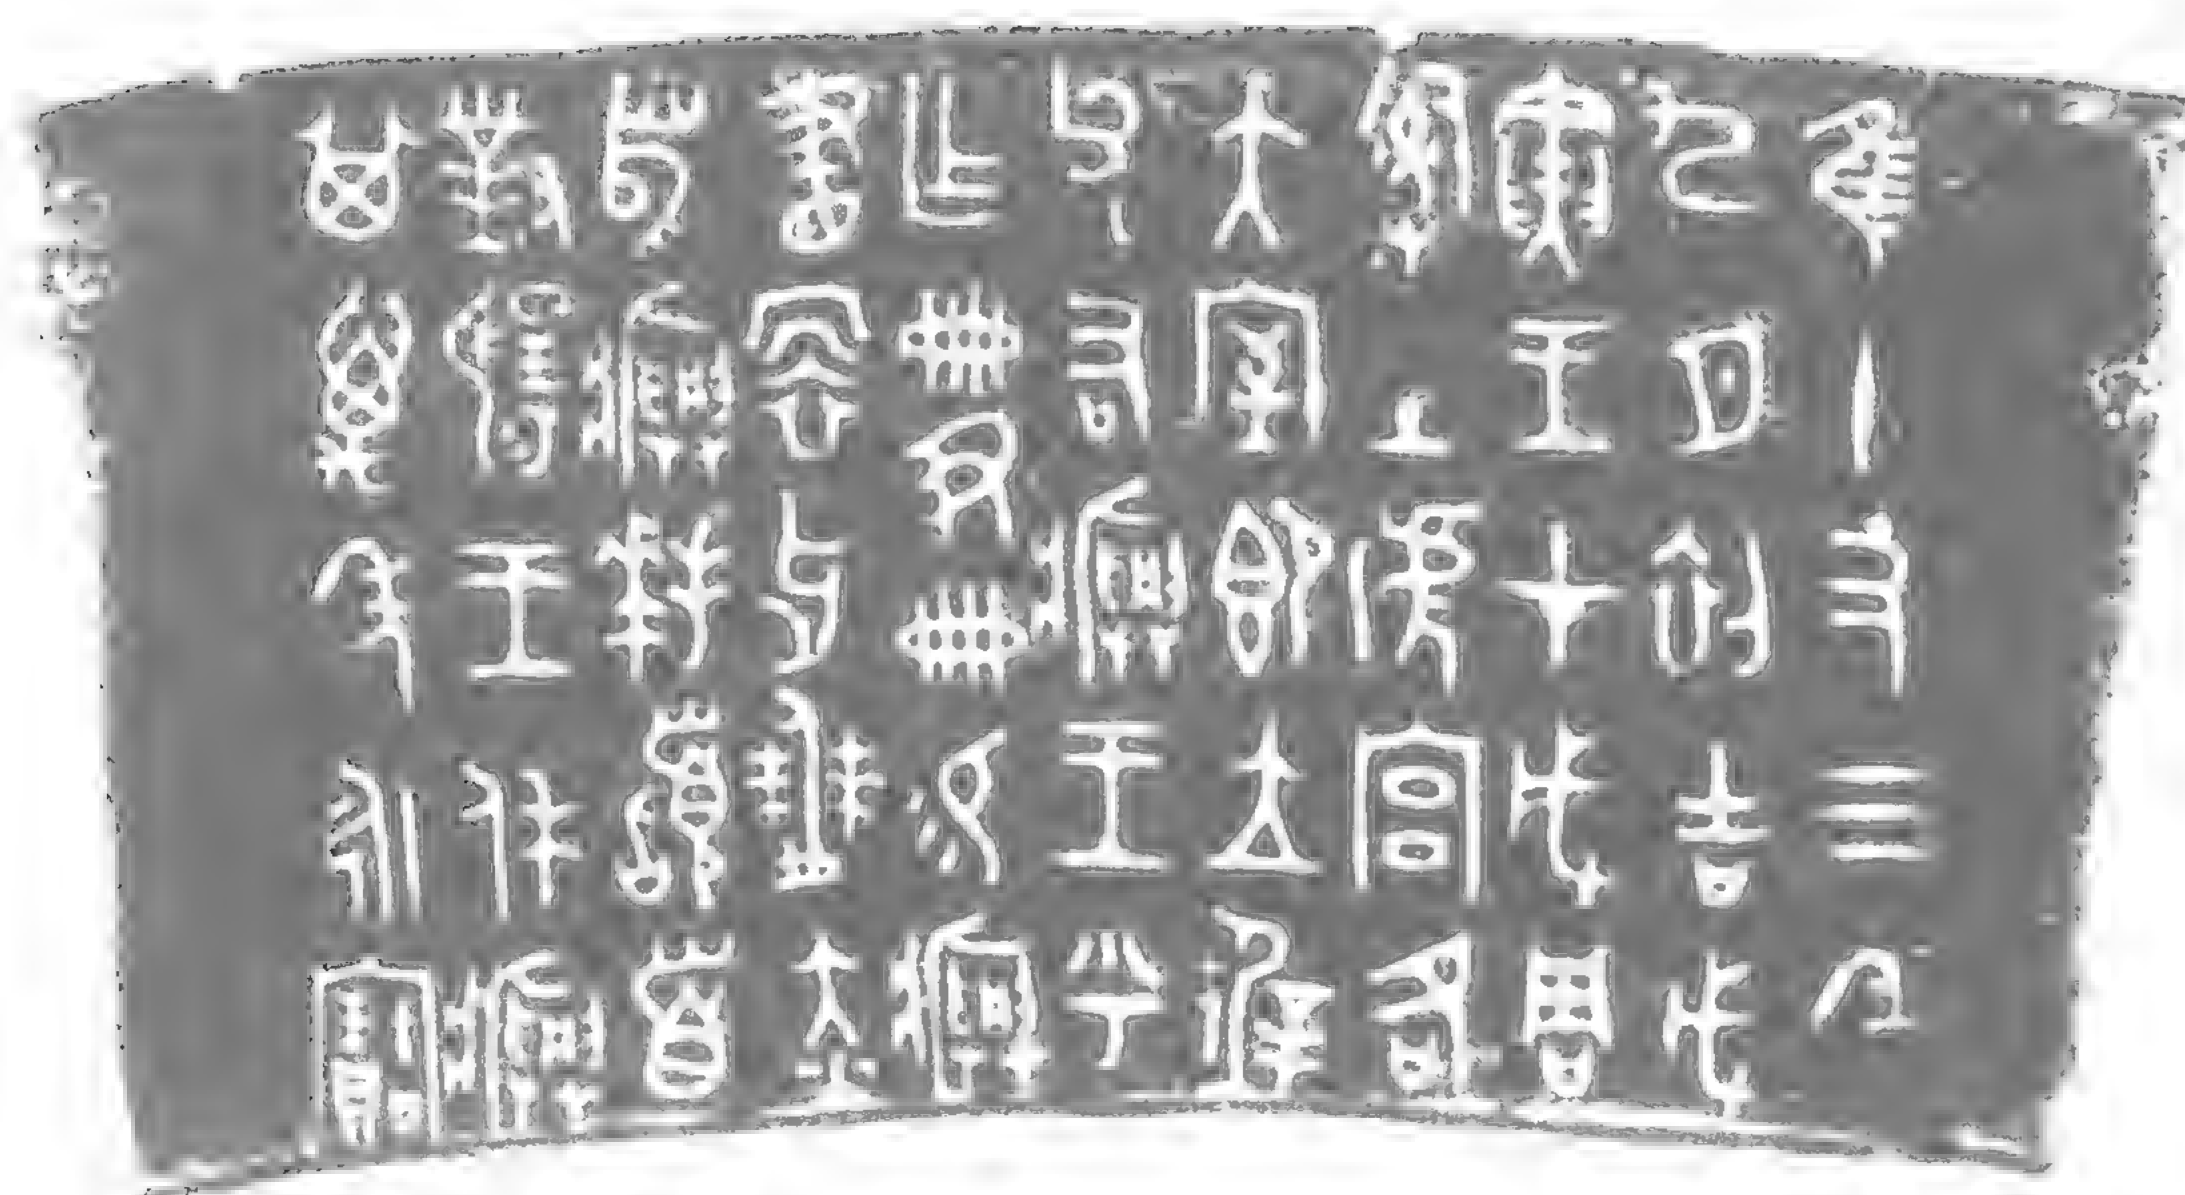 隹十又三年
九月初吉戊
寅王才成周
𤔲土淲宮各
大室即立徲
父右𤼈王乎
乍冊尹冊易𤼈
畫牙僰赤
舄𤼈拜𩒨首
對揚王休𤼈
其萬年永寶